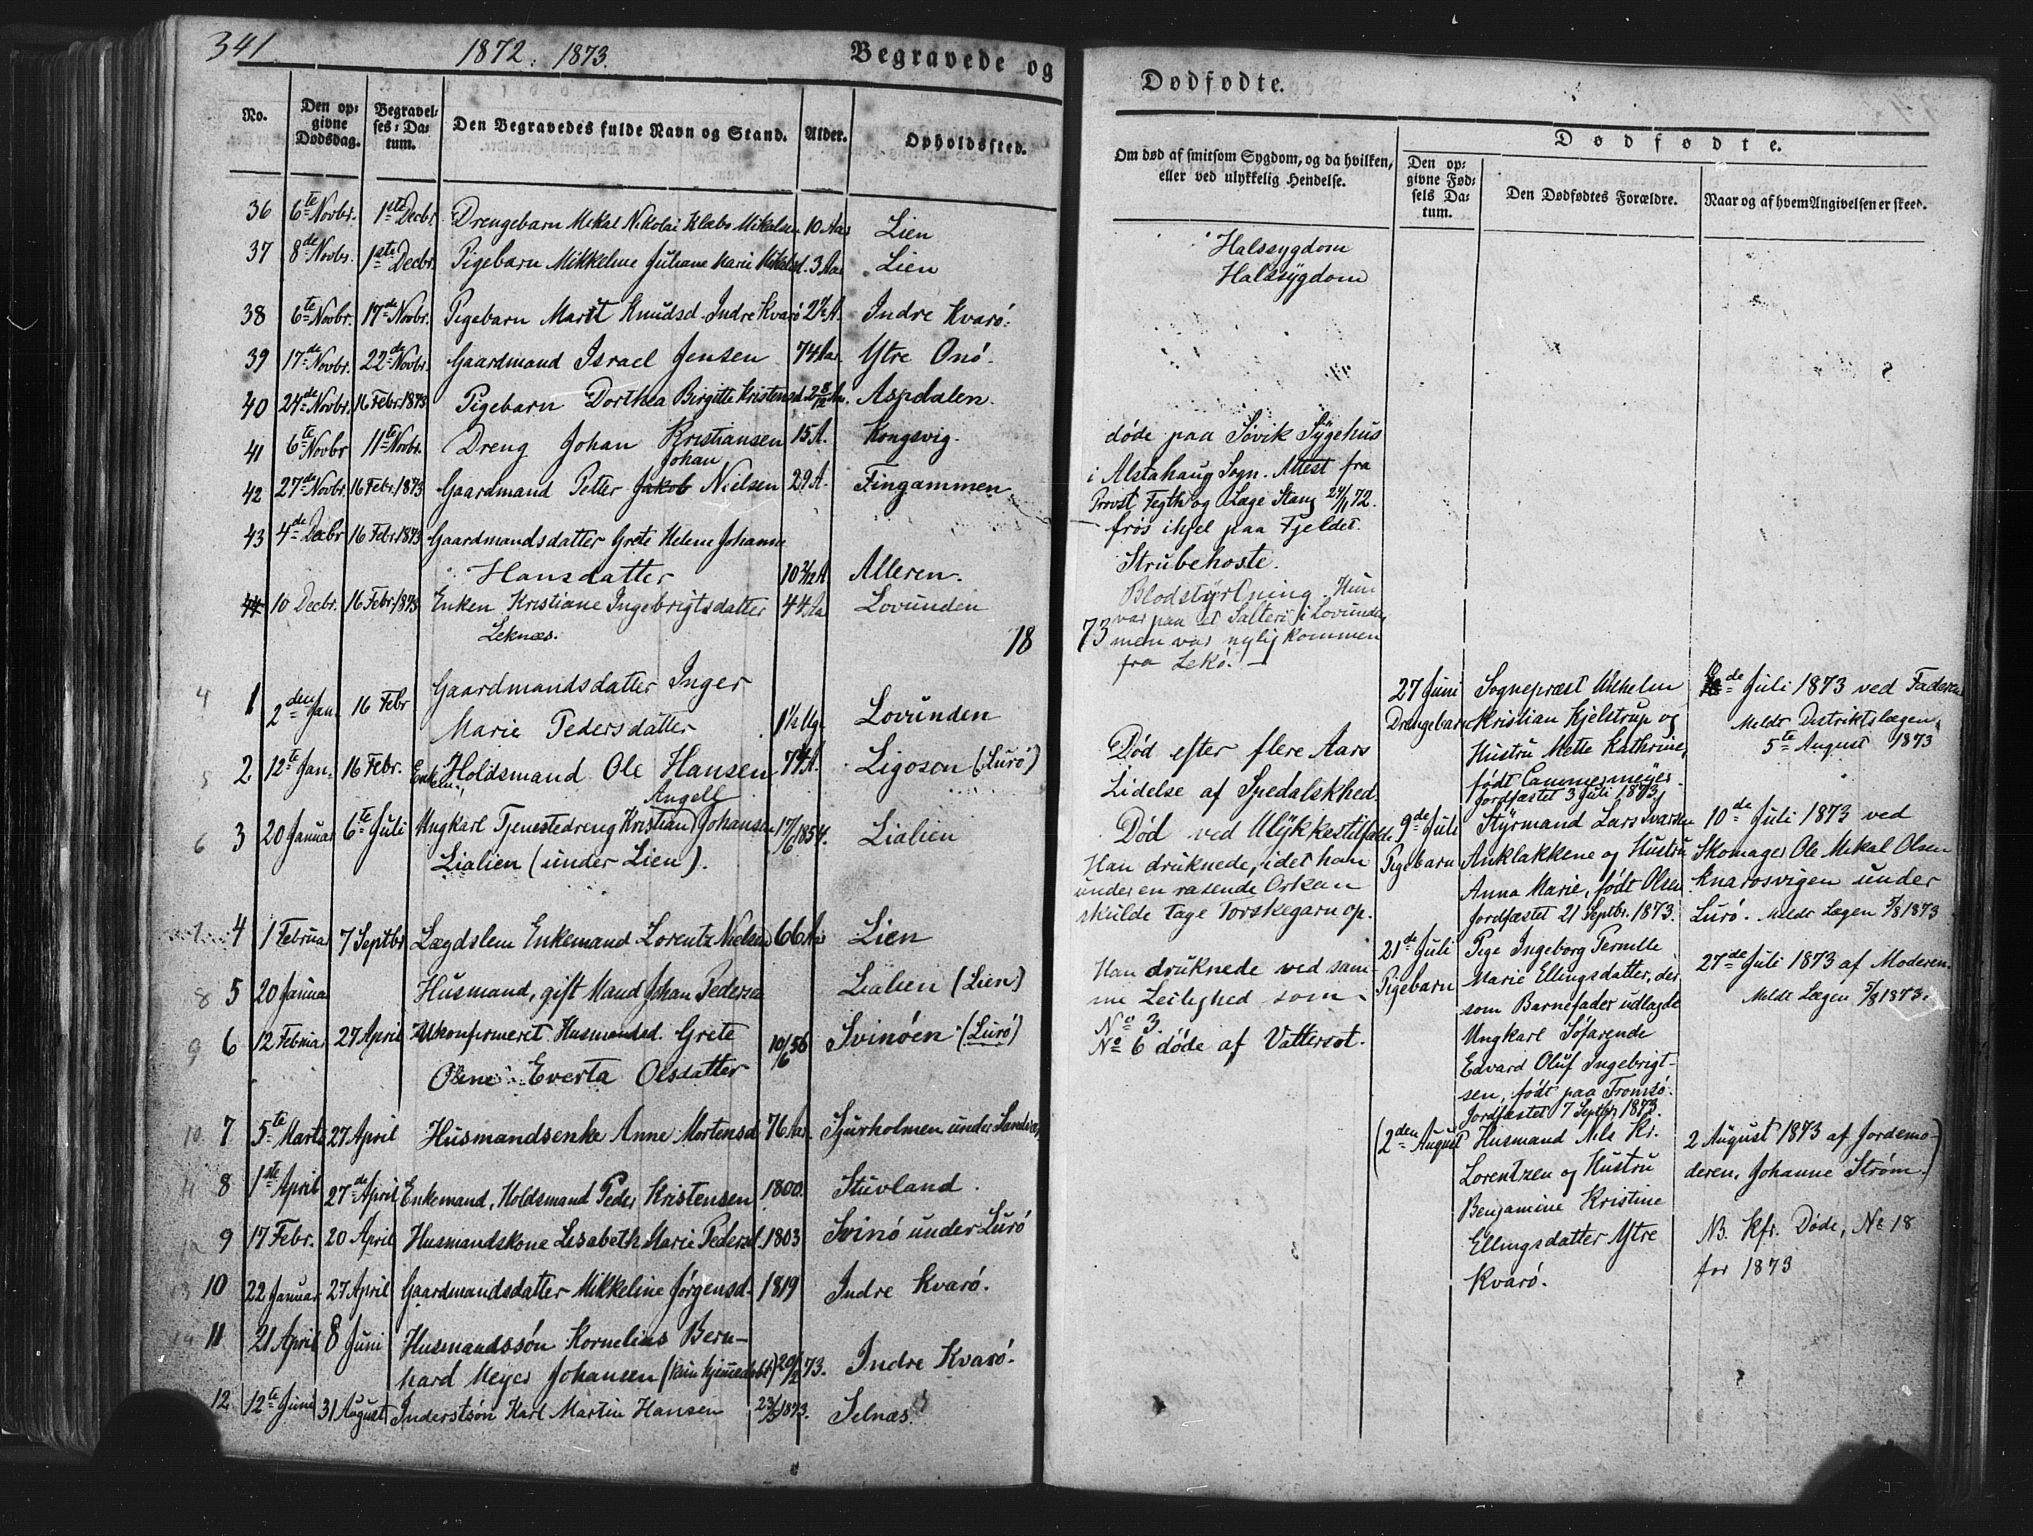 341.
1872. 1873.
Begravede og
No.
Den opgivne Dødsdag.
Begravelses-Datum.
Den Begravedes fulde Navn og Stand.
Alder.
Opholdssted.
36 6te Novbr. 1ste Decbr. Drengebarn Mikal Nikolai Klæbo Mikalsen 10 Aar Lien
37 8de Novbr. 1ste Decbr. Pigebarn Mikkeline Juliane Marie Mikalsd. 3 Aar Lien
38 6te Novbr. 17de Novbr. Pigebarn Marit Knudsd. Indre Kvarø 2½ A. Indre Kvarø.
39 17de Novbr. 22de Novbr. Gaardmand Israel Jensen 74 Aar. Ytre Onø.
40 24de Novbr. 16 Febr. 1873 Pigebarn Dorthea Birgitte Kristensd. 2 8/12 Aar. Aspdalen.
41 6te Novbr 11te Novbr. Dreng Johan Kristiansen 15 A. Kongsvig.
Johan
42 27de Novbr. 16 Febr. 1873 Gaardmand Petter Jakob Nielsen 29 A. Fingammen
43 4de Decbr 16 Febr. 1873 Gaardmandsdatter Grete Helene Johanne
Hansdatter 10 2/12 A. Alleren.
44 10 Decbr. 16 Febr. 1873 Enken Kristiane Ingebrigtsdatter 44 Aa Lovunden
Leknæs.
18
4 1 2den Jan. 16 Febr Gaardmandsdatter Inger
Marie Pedersdatter 1½ Ug. Lovunden
5 2. 12te Jan. 16 Febr. Enkem., Holdsmand Ole Hansen 74 A. Ligosen (Lurø)
Angell
6 3 20 Januar 6te Juli Ungkarl Tjenestedreng Kristian Johansen 17/6 1854. Lialien
Lialien (under Lien).
7 4 1 Februar 7 Septbr Lægdslem Enkemand Lorentz Nielsen 66 Aar Lien
8 5 20 Januar Husmand, gift Mand Johan Pedersen Lialien (Lien)
9 6 12 Februar 27 April Ukonfirmeret Husmandsd. Grete 10/6 56 Svinøen (Lurø)
Oline Everta Olsdatter
10 7 5te Marts 27 April Husmandsenke Anne Mortensd 76 Aar. Sjurholmen under
11 8 1ste April 27de April Enkemand, Holdsmand Peder Kristensen 1800. Stuvland.
12 9 17 Febr. 20 April Husmandskone Lisabeth Marie Pedersd. 1803 Svinø under Lurø
13 10 22 Januar 27 April Gaardmandsdatter Mikkeline Jørgensd. 1819 Indre Kvarø.
14 11 21 April 8 Juni Husmandssøn Kornelius Bern-
hard Meyer Johansen (kun hjemmedøbt) 20/2 73. Indre Kvarø.
12 12te Juni 31 August Inderstsøn Karl Martin Hansen 23/5 1873. Selnæs.
Dødfødte.
Om død af smitsom Sygdom, og da hvilken, eller ved ulykkelig Hendelse.
Dødfødte.
Den opgivne Fødsels Datum.
Den Dødfødtes Forældre.
Naar og af hvem Angivelsen er skeed.
Halssygdom
Halssygdom
døde paa Søvik Sygehus
i Alstahaug Sogn. Attest fra
Provst Fegth og Læge Stang 24/11 72.
frøs ihjel paa Fjeldet.
Strubehoste.
Blodstyrtning. Hun
var paa et Salteri i Lovunden
73 men var nylig kommen
fra Lekø.
Død efter flere Aars
Lidelse af Spedalskhed.
Død ved Ulykkestilfælde.
Han druknede, idet han
under en rasende Orkan
skulde tage Torskegarn op.
Han druknede ved sam-
me Leilighed som
No 3.
No 6 døde af Vattersot.
27 Juni
Drengebarn
Sognepræst Wilhelm
Kristian Kjelstrup og
Hustru Mette Kathrine,
født Cammermeyer.
Jordfæstet 3 Juli 1873.
de Juli 1873 ved Faderen
Meldt Distriktslægen
5te August 1873
9de Juli
Pigebarn
Styrmand Lars Ivarsen
Anklakkene og Hustru
Anna Marie, født Olsen
Jordfæstet 21 Septbr. 1873.
10de Juli 1873 ved
Skomager Ole Mikal Olsen
Knarosvigen under
Lurø. Meldt Lægen 5/8 1873
21de Juli
Pigebarn
Pige Ingeborg Pernille
Marie Ellingsdatter, der
som Barnefader udlagde
Ungkarl Søfarende
Edvard Oluf Ingebrigt-
sen, født paa Tromsø.
Jordfæstet 7 Septbr 1873.
27de Juli 1873 af Moderen.
Meldt Lægen 5/8 1873.
(2den August
Husmand Nils Kr.
Lorentzen og Hustru
Benjamine Kristine
Ellingsdatter Ytre
Kvarø.
2 August 1873 af Jordemo-
deren, Johanne Strøm.)
NB. Kfr. Døde, No 18
for 1873